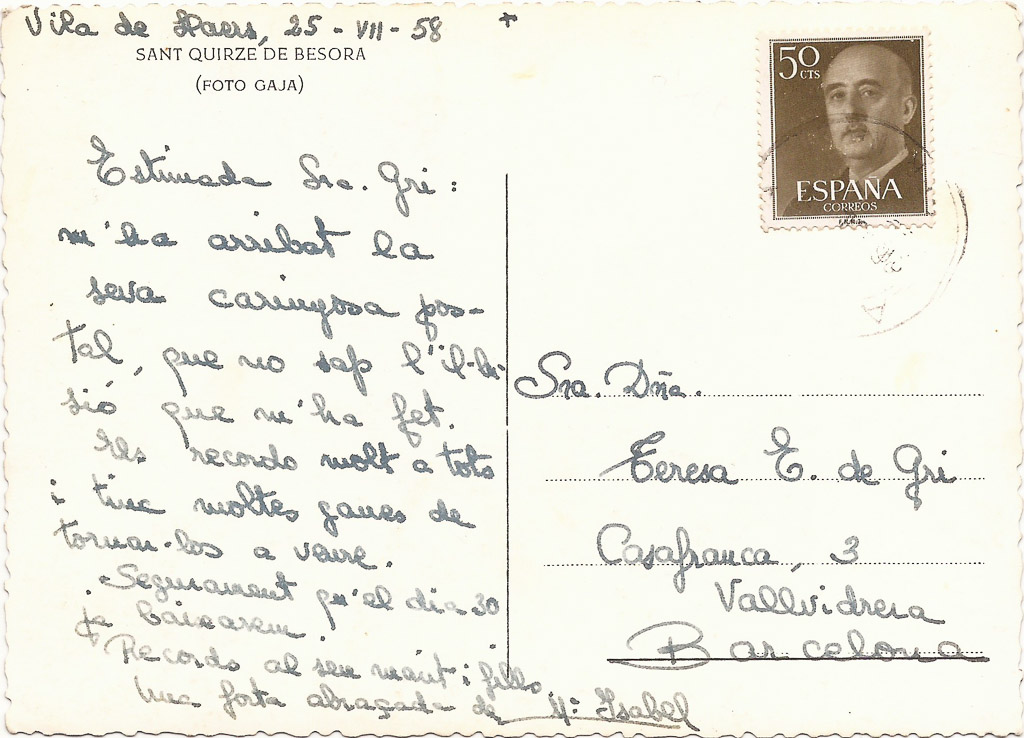 Vila de Haers, 25 - VII - 58
SANT QUIRZE DE BESORA
(FOTO GAJA)
Estimada Sra. Gri:
m'ha arribat la
seva caringosa pos-
tal, que no sap l'il-lu-
sió que m'ha fet.
Els recordo molt a tots
i tinc moltes ganes de
tornar-los a veure.
Segurament qu'el dia 30
ja baixarem.
Records al seu marit i fills
una forta abraçada de Mª Isabel
50
CTS
ESPAÑA
CORREOS
Sra. Dña.
Teresa E. de Gri
Casafranca, 3
Vallvidrera
Barcelona